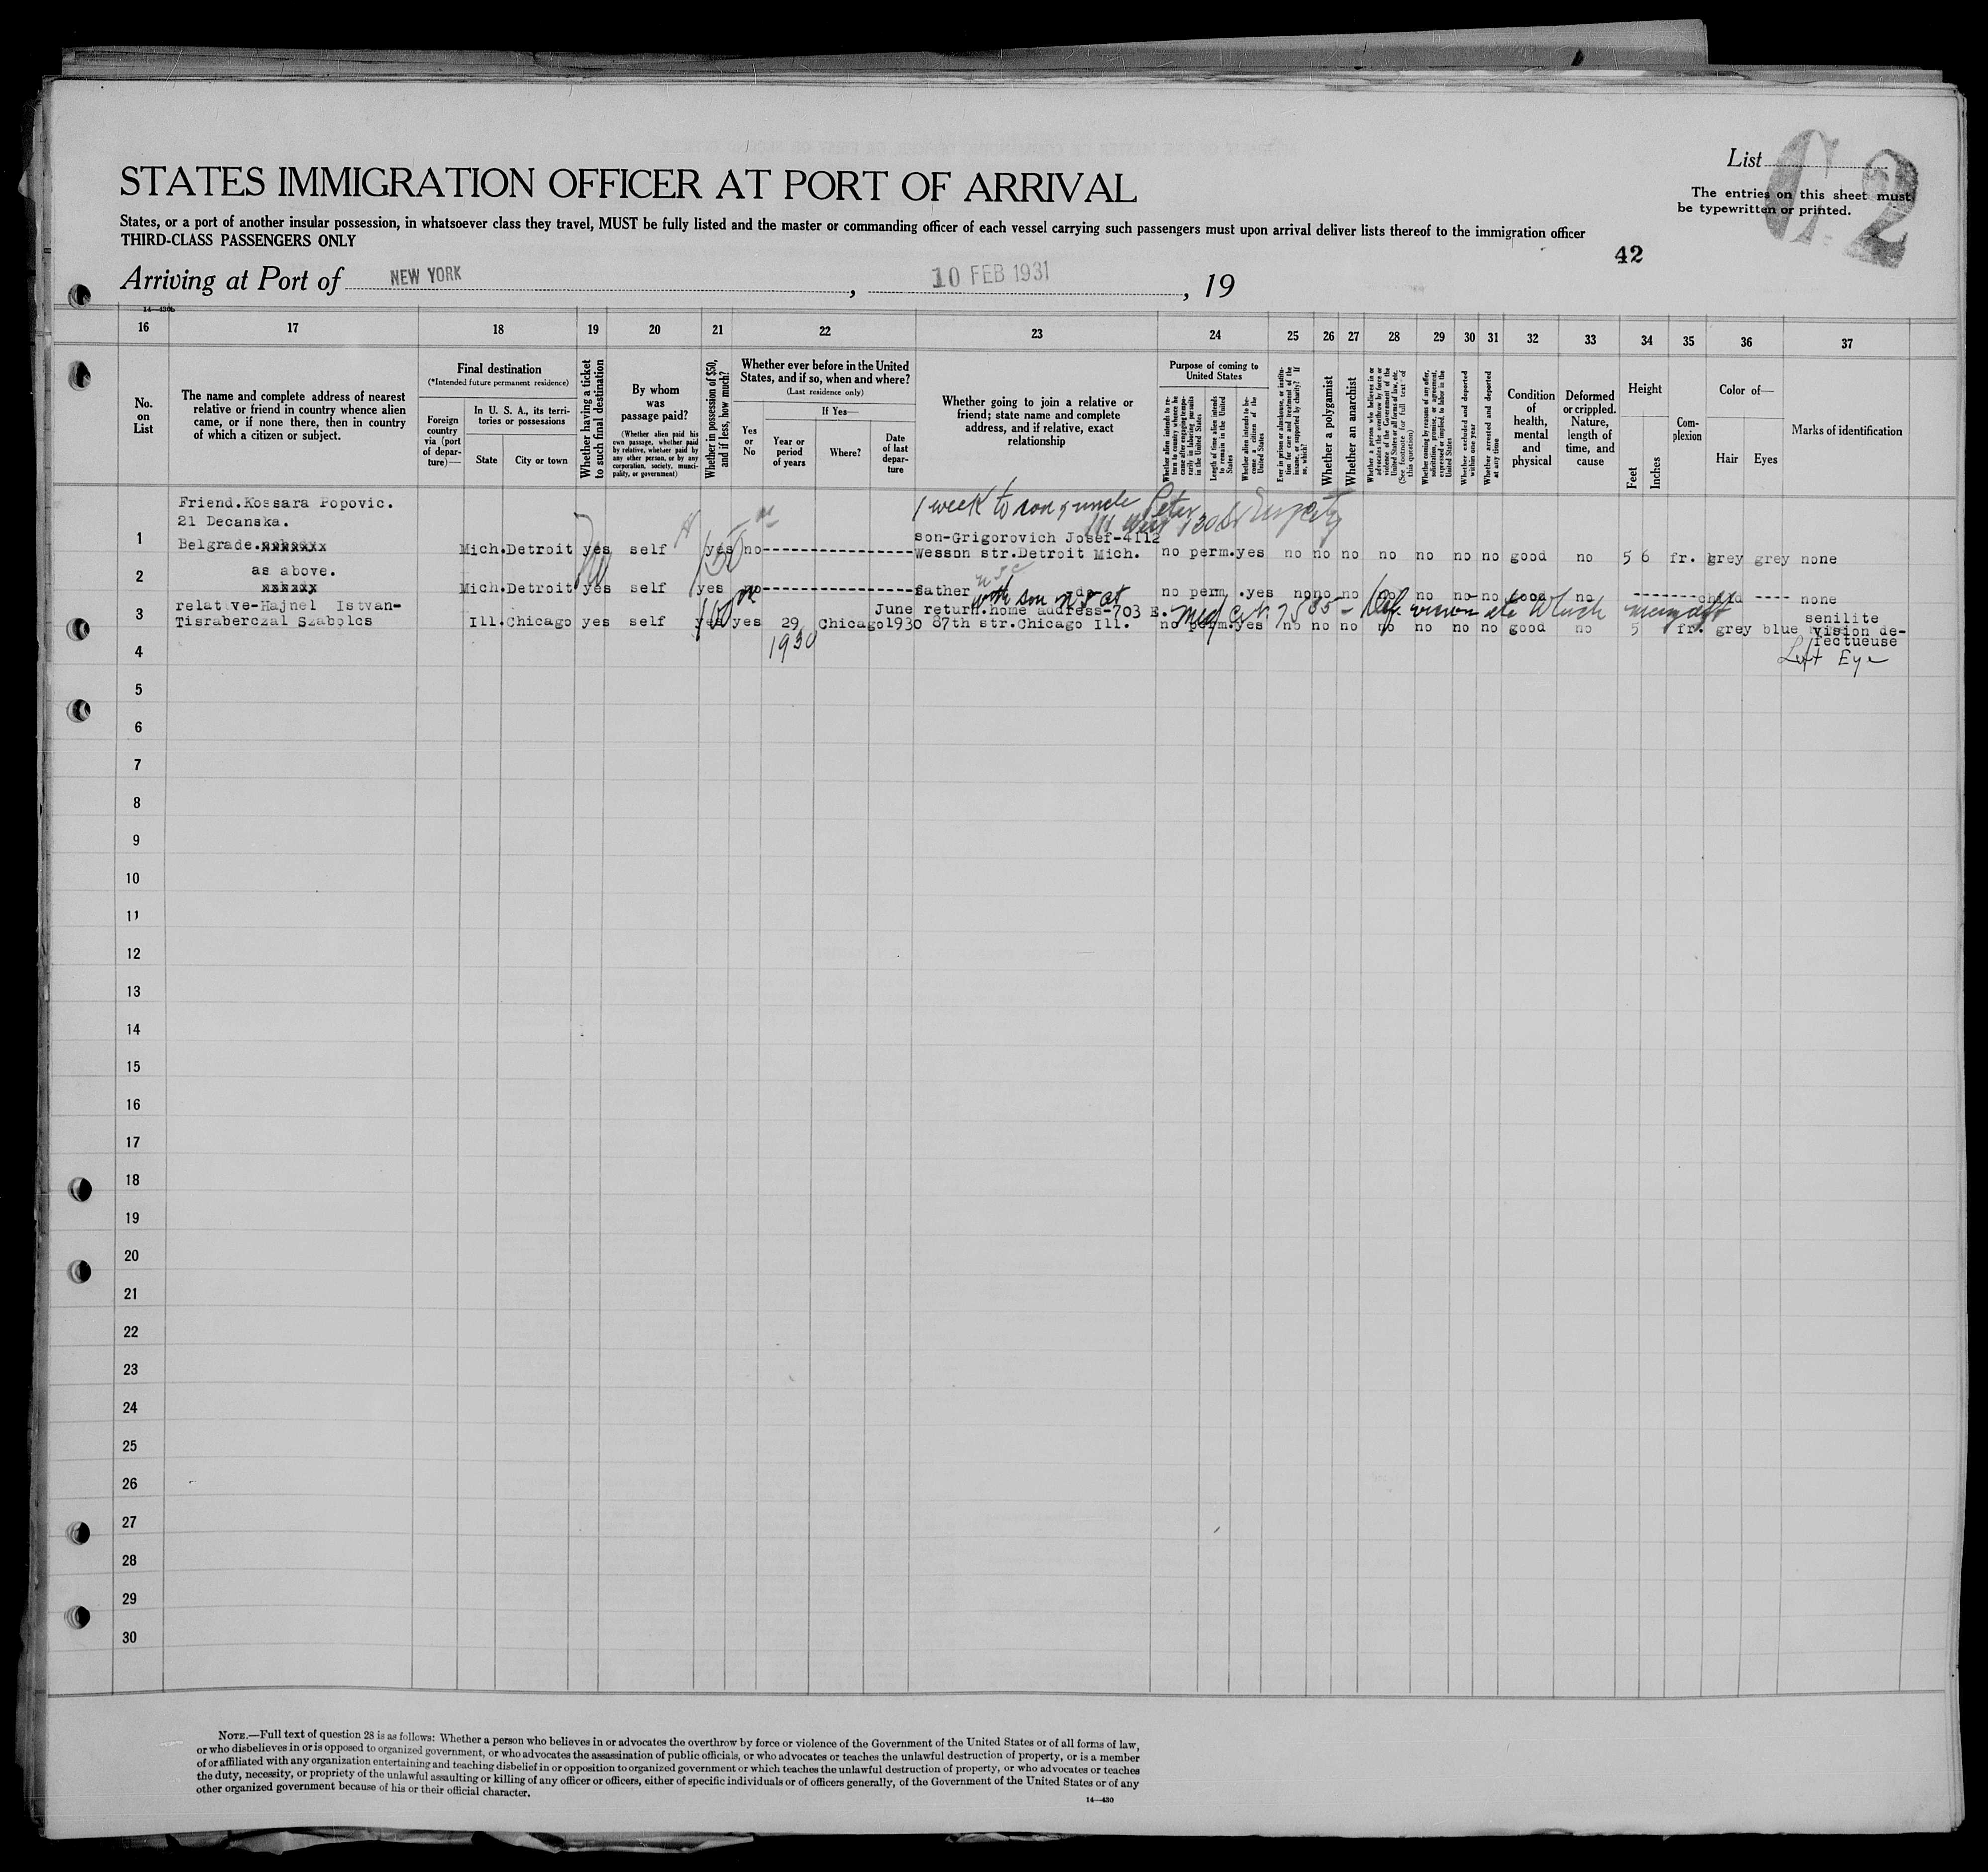 List
C-2
The entries on this sheet must
be typewritten or printed.
STATES IMMIGRATION OFFICER AT PORT OF ARRIVAL
States, or a port of another insular possession, in whatsoever class they travel, MUST be fully listed and the master or commanding officer of each vessel carrying such passengers must upon arrival deliver lists thereof to the immigration officer
THIRD-CLASS PASSENGERS ONLY
42
Arriving at Port of NEW YORK, 10 FEB 1931, 19
14—430b
16 17 18 19 20 21 22 23 24 25 26 27 28 29 30 31 32 33 34 35 36 37
No. on List
The name and complete address of nearest relative or friend in country whence alien came, or if none there, then in country of which a citizen or subject.
Final destination
(*Intended future permanent residence)
Foreign country via (port of departure)—
In U. S. A., its territories or possessions
State
City or town
Whether having a ticket to such final destination
By whom was passage paid?
(Whether alien paid his own passage, whether paid by relative, whether paid by any other person, or by any corporation, society, municipality, or government)
Whether in possession of $50, and if less, how much?
Whether ever before in the United States, and if so, when and where?
(Last residence only)
Yes or No
If Yes—
Year or period of years
Where?
Date of last departure
Whether going to join a relative or friend; state name and complete address, and if relative, exact relationship
Purpose of coming to United States
Whether alien intends to return to country whence he came after engaging temporarily in laboring pursuits in the United States
Length of time alien intends to remain in the United States
Whether alien intends to become a citizen of the United States
Ever in prison or almshouse, or institution for care and treatment of the insane, or supported by charity? If so, which?
Whether a polygamist
Whether an anarchist
Whether a person who believes in or advocates the overthrow by force or violence of the Government of the United States or all forms of law, etc. (See footnote for full text of this question)
Whether coming by reasons of any offer, solicitation, promise, or agreement, expressed or implied, to labor in the United States
Whether excluded and deported within one year
Whether arrested and deported at any time
Condition of health, mental and physical
Deformed or crippled. Nature, length of time, and cause
Height
Feet
Inches
Complexion
Color of—
Hair Eyes
Marks of identification
1 week to son & uncle Peter
Friend.Kossara Popovic.
21 Decanska.
1 Belgrade. Mich.Detroit yes self yes no son-Grigorovich Josef-4112
wesson str.Detroit Mich. no perm.yes no no no no no no no good no 5 6 fr. grey grey none
as above.
2 Mich.Detroit yes self yes no father no perm.yes no no no no no no no good no child ---- none
relative-Hajnel Istvan-
June return.home address-703 E.
3 Tisraberczal Szabolcs Ill.Chicago yes self yes yes 29 Chicago 1930 87th str.Chicago Ill. no perm.yes no no no no no no no good no 5 fr. grey blue
1930
senilite
vision de-
fectueuse
Left Eye
4
5
6
7
8
9
10
11
12
13
14
15
16
17
18
19
20
21
22
23
24
25
26
27
28
29
30
NOTE.—Full text of question 28 is as follows: Whether a person who believes in or advocates the overthrow by force or violence of the Government of the United States or of all forms of law,
or who disbelieves in or is opposed to organized government, or who advocates the assassination of public officials, or who advocates or teaches the unlawful destruction of property, or is a member
of or affiliated with any organization entertaining and teaching disbelief in or opposition to organized government or which teaches the unlawful destruction of property, or who advocates or teaches
the duty, necessity, or propriety of the unlawful assaulting or killing of any officer or officers, either of specific individuals or of officers generally, of the Government of the United States or of any
other organized government because of his or their official character.
14—430